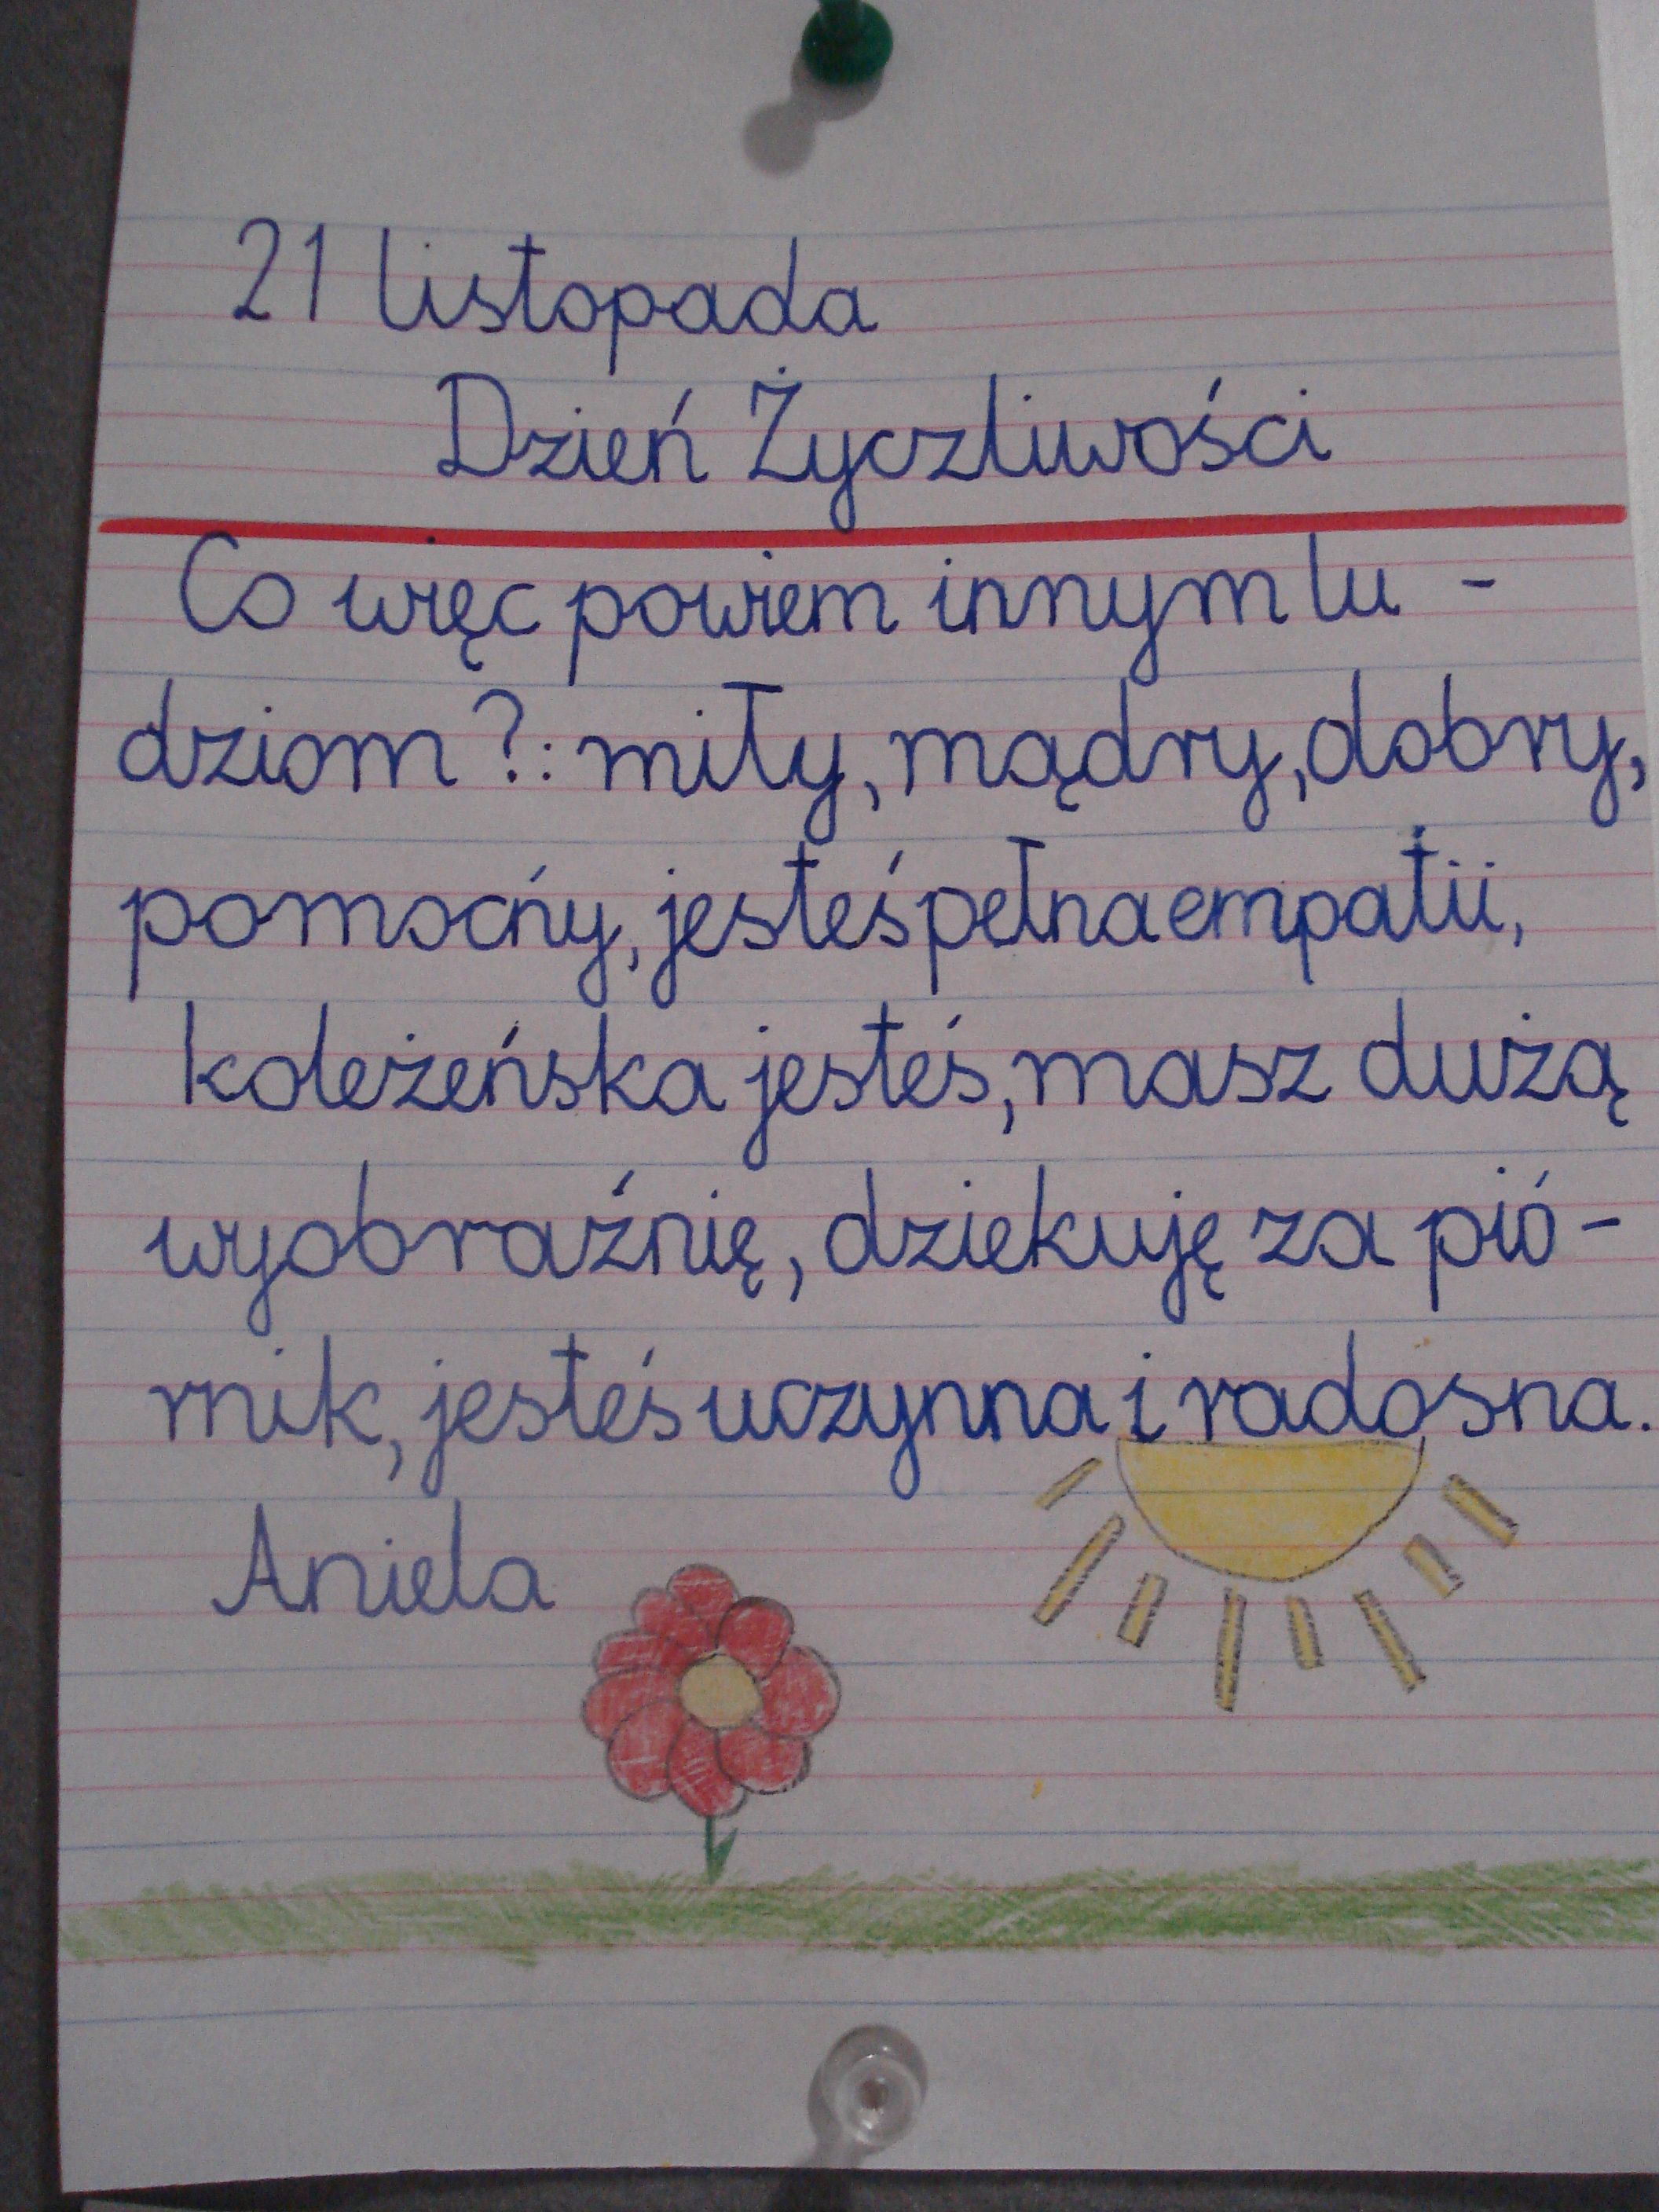 21 listopada
Dzień Życzliwości
Co więc powiem innym lu -
dziom ?: miły, mądry, dobry,
pomocńy, jesteś pełna empatii,
koleżeńska jesteś, masz dużą
wyobraźnię, dziekuję za pió -
rnik, jesteś uczynna i radosna.
Aniela